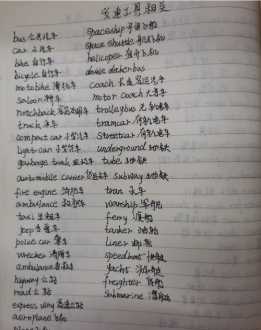 交通工具相关
bus 公共汽车 spaceship 宇宙飞船
car 小汽车 space shuttle 航天飞机
bike 自行车 helicopter 直升飞机
bicycle 自行车 double decker bus
motobike 摩托车 coach 长途客运汽车
saloon 轿车 motor coach 大客车
hatchback trolleybus 无轨电车
truck 卡车 tramcar 有轨电车
compact car 小型汽车 streetcar 有轨电车
light car 小型汽车 underground 地铁
garbage truck 垃圾车 tube 地铁
automobile carrier subway 地铁
fire engine 消防车 train 火车
ambulance 救护车 warship 军用船
taxi 出租车 ferry 渡船
jeep 吉普车 tanker 油轮
police car 警车 liner 邮轮
wrecker 清障车 speedboat 快艇
ambulance 救护车 yacht
highway 公路 freighter 货船
road 公路 submarine 潜水艇
express way 高速公路
aeroplane 飞机